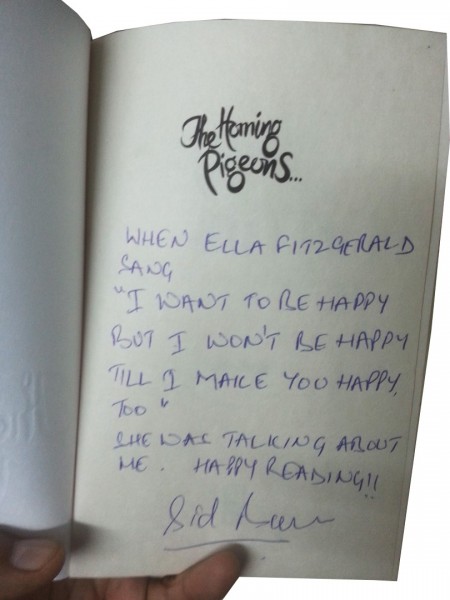 The Homing
Pigeons...
WHEN ELLA FITZGERALD
SANG
"I WANT TO BE HAPPY
BUT I WON'T BE HAPPY
TILL I MAKE YOU HAPPY,
TOO"
SHE WAS TALKING ABOUT
ME. HAPPY READING!!
Sid